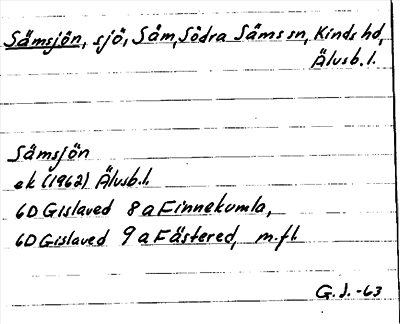 Sämsjön, sjö, Säm, Södra Säms sn, Kinds hd,
Älvsb. l.
Sämsjön
ek (1962) Älvsb. l.
6D Gislaved 8a Finnekumla,
6D Gislaved 9a Fästered, m.fl.
G. J. -63